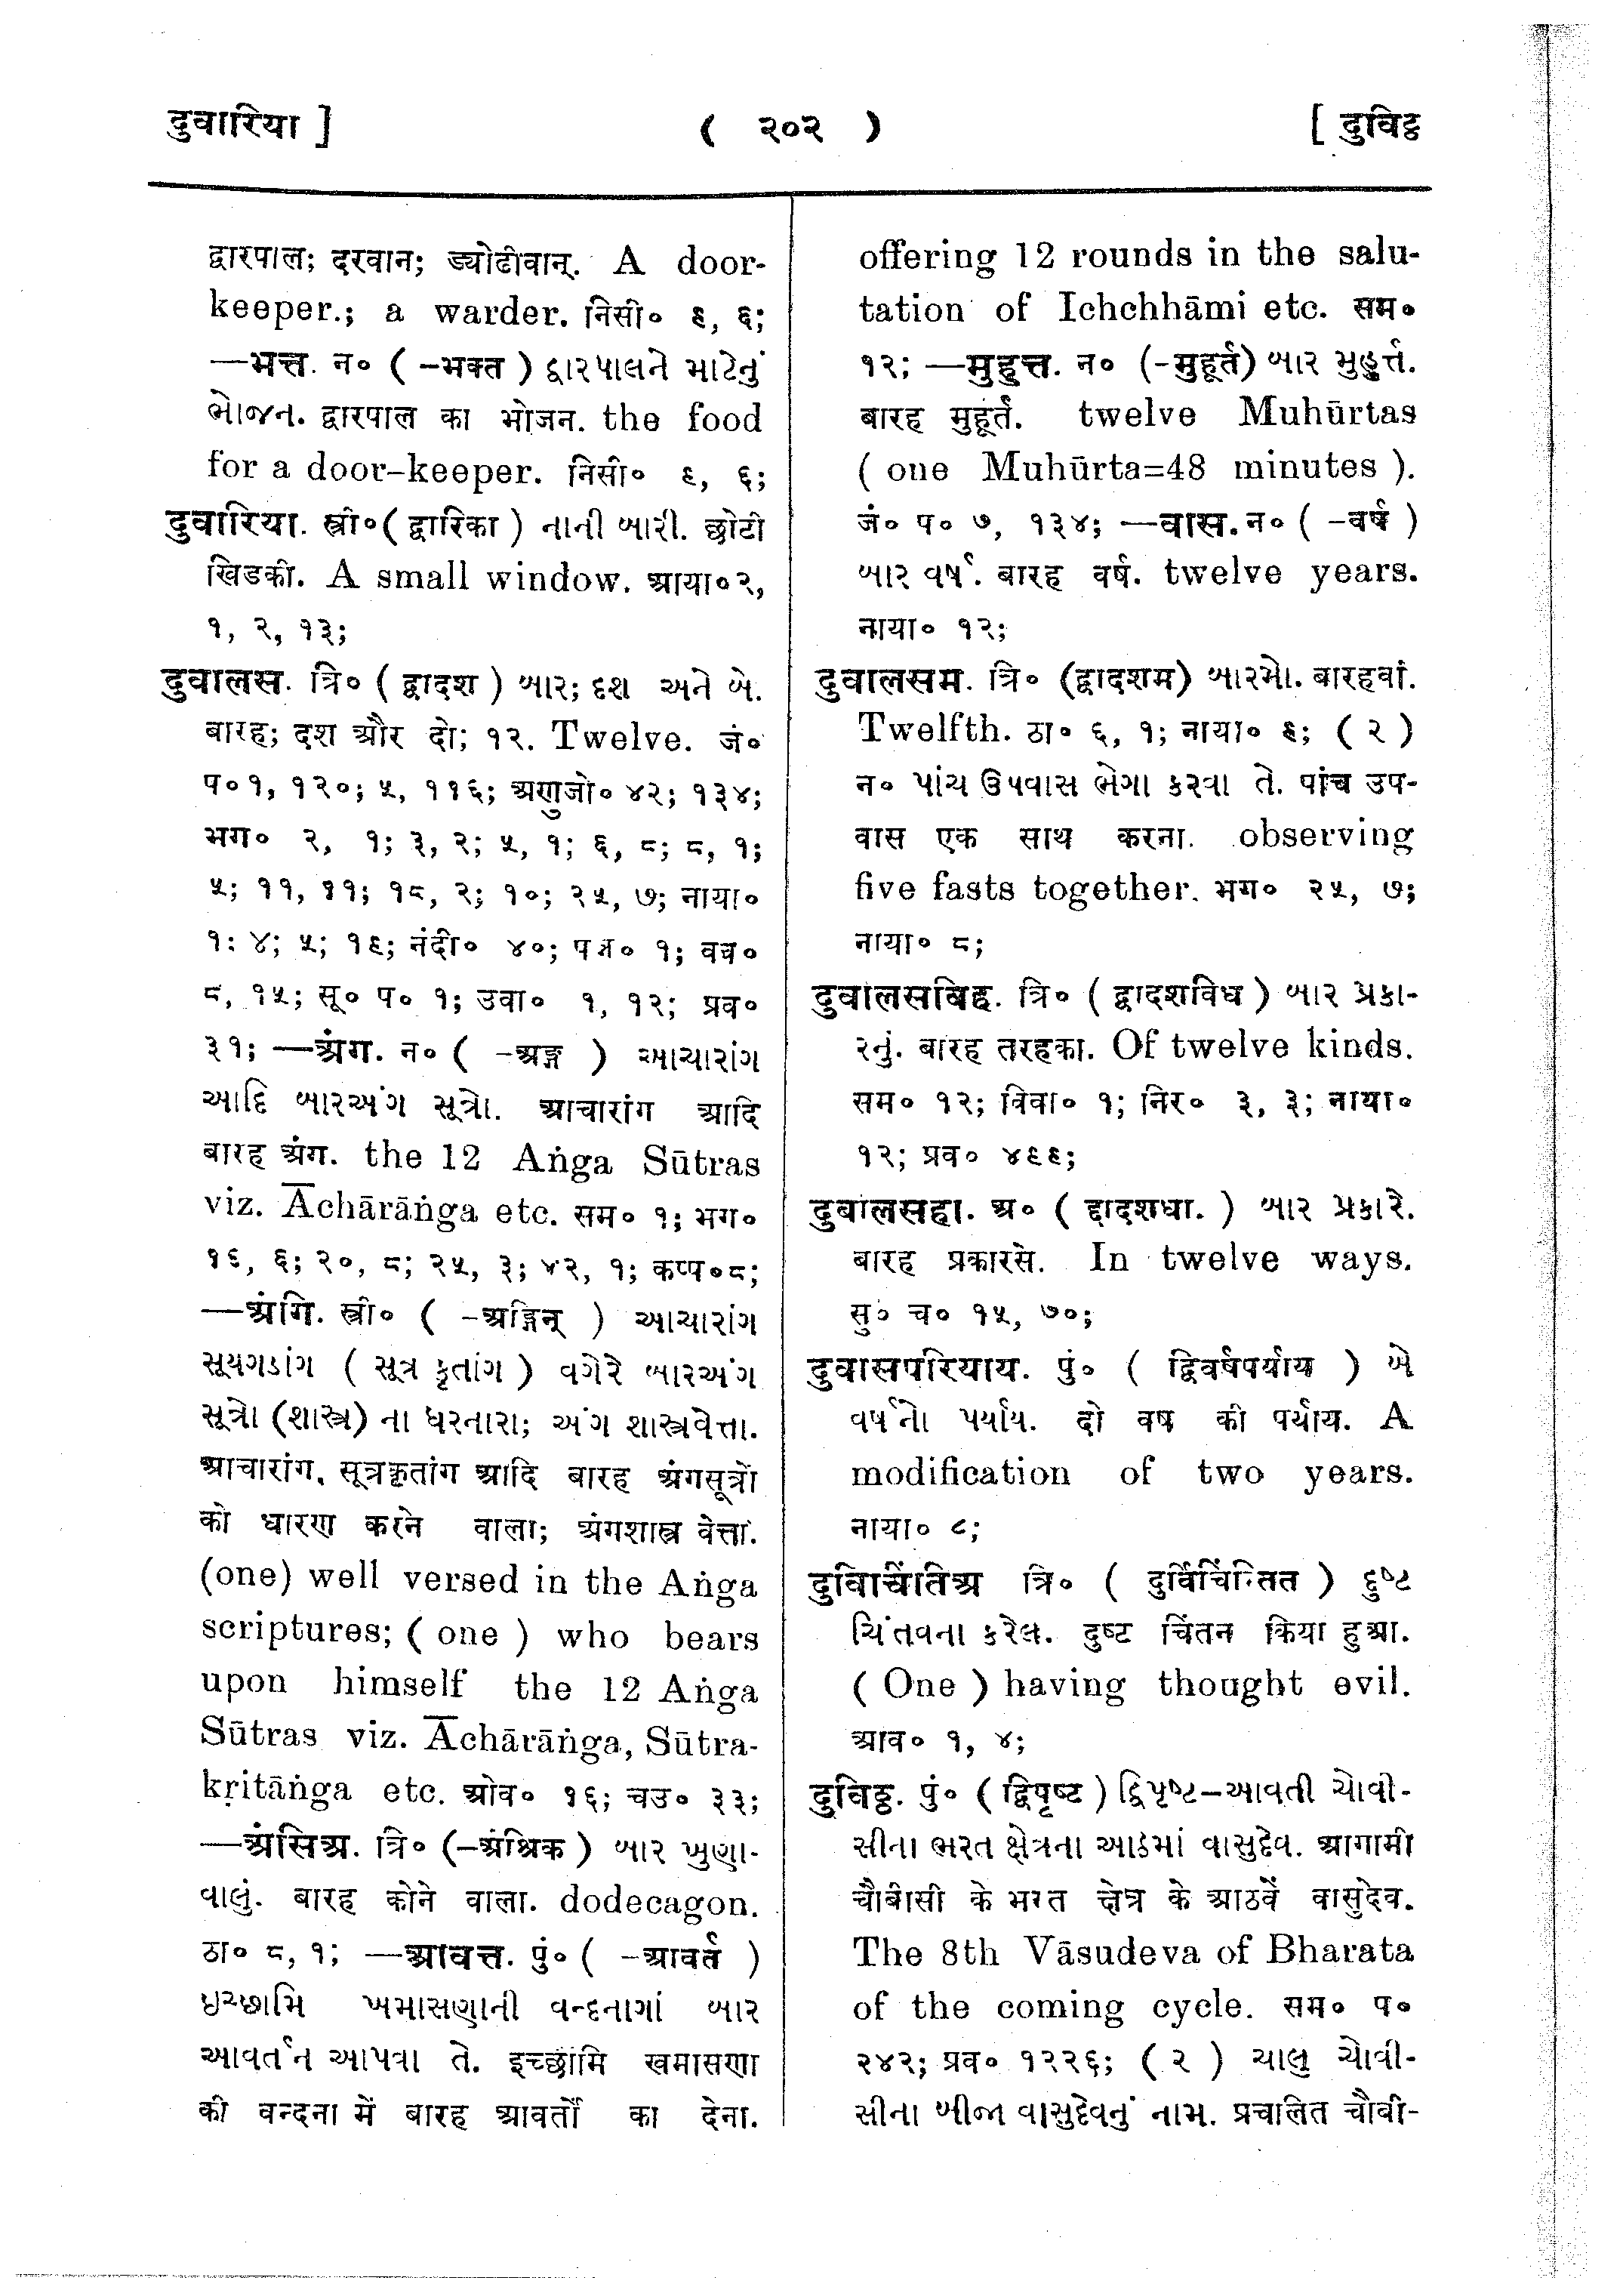 दुवारिया ]
( २०२ )
[ दुविट्ठ
द्वारपाल; दरवान; ड्योढीवान्. A door-
keeper.; a warder. निसी० ९, ६;
—भत्त. न० ( -भक्त ) દ્વારપાલને માટેનું
ભોજન. द्वारपाल का भोजन. the food
for a door-keeper. निसी० ९, ६;
दुवारिया. स्त्री० ( द्वारिका ) નાની બારી. छोटी
खिडकी. A small window. आया० २,
१, २, १३;
दुवालस. त्रि० ( द्वादश ) બાર; દશ અને બે.
बारह; दश और दो; १२. Twelve. जं०
प० १, १२०; ५, ११६; अणुजो० ४२; १३४;
भग० २, १; ३, २; ५, १; ६, ८; ८, १;
५; ११, ११; १८, २; १०; २५, ७; नाया०
१: ४; ५; १६; नंदी० ४०; पन्न० १; वव०
८, १५; सू० प० १; उवा० १, १२; प्रव०
३१; —अंग. न० ( -अङ्ग ) આચારાંગ
આદિ બારઅંગ સૂત્રો. आचारांग आदि
बारह अंग. the 12 Aṅga Sūtras
viz. Āchārāṅga etc. सम० १; भग०
१६, ६; २०, ८; २५, ३; ४२, १; कप्प० ८;
—अंगि. स्त्री० ( -अङ्गिन् ) આચારાંગ
સૂયગડાંગ ( સૂત્ર કૃતાંગ ) વગેરે બારઅંગ
સૂત્રો (શાસ્ત્ર) ના ધરનારા; અંગ શાસ્ત્રવેત્તા.
आचारांग, सूत्रकृतांग आदि बारह अंगसूत्रों
को धारण करने वाला; अंगशास्त्र वेत्ता.
(one) well versed in the Aṅga
scriptures; ( one ) who bears
upon himself the 12 Aṅga
Sūtras viz. Āchārāṅga, Sūtra-
kṛitāṅga etc. ओव० १६; चउ० ३३;
—अंसिअ. त्रि० (-अंश्रिक ) બાર ખુણા-
વાલું. बारह कोने वाला. dodecagon.
ठा० ८, १; —आवत्त. पुं० ( -आवर्त )
ઇચ્છામિ ખમાસણાની વન્દનામાં બાર
આવર્તન આપવા તે. इच्छामि खमासणा
की वन्दना में बारह आवर्तों का देना.
offering 12 rounds in the salu-
tation of Ichchhāmi etc. सम०
१२; —मुहुत्त. न० (-मुहूर्त) બાર મુહુર્ત્ત.
बारह मुहूर्त. twelve Muhūrtas
( one Muhūrta=48 minutes ).
जं० प० ७, १३४; —वास. न० ( -वर्ष )
બાર વર્ષ. बारह वर्ष. twelve years.
नाया० १२;
दुवालसम. त्रि० (द्वादशम) બારમો. बारहवां.
Twelfth. ठा० ६, १; नाया० ९; ( २ )
न० પાંચ ઉપવાસ ભેગા કરવા તે. पांच उप-
वास एक साथ करना. observing
five fasts together. भग० २५, ७;
नाया० ८;
दुवालसविह. त्रि० ( द्वादशविध ) બાર પ્રકા-
રનું. बारह तरहका. Of twelve kinds.
सम० १२; विवा० १; निर० ३, ३; नाया०
१२; प्रव० ४९९;
दुवालसहा. अ० ( द्वादशधा. ) બાર પ્રકારે.
बारह प्रकारसे. In twelve ways.
सु० च० १५, ७०;
दुवासपरियाय. पुं० ( द्विवर्षपर्याय ) બે
વર્ષનો પર્યાય. दो वष की पर्याय. A
modification of two years.
नाया० ८;
दुविचिंतिअ त्रि० ( दुर्विचिन्तित ) દુષ્ટ
ચિંતવના કરેલ. दुष्ट चिंतन किया हुआ.
( One ) having thought evil.
आव० १, ४;
दुविट्ठ. पुं० ( द्विपृष्ट ) દ્વિપૃષ્ટ–આવતી ચોવી-
સીના ભરત ક્ષેત્રના આઠમાં વાસુદેવ. आगामी
चौबीसी के भरत क्षेत्र के आठवें वासुदेव.
The 8th Vāsudeva of Bharata
of the coming cycle. सम० प०
२४२; प्रव० १२२६; ( २ ) ચાલુ ચોવી-
સીના બીજા વાસુદેવનું નામ. प्रचालित चौबी-